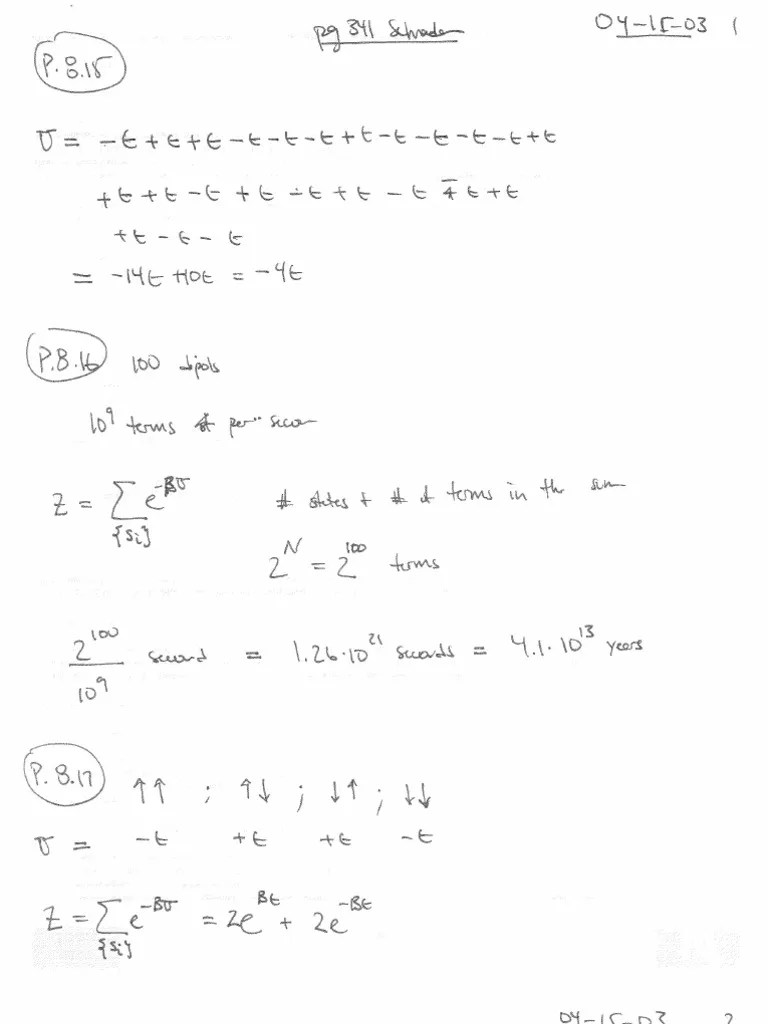 pg 341 Schroeder 04-15-03 1
P.8.15
U = -ε+ε+ε-ε-ε-ε+ε-ε-ε-ε-ε+ε
+ε+ε-ε+ε-ε+ε-ε∓ε+ε
+ε-ε-ε
= -14ε+10ε = -4ε
P.8.16 100 dipols
10⁹ terms per secon
Z = ∑ e^{-βU} # states # of terms in the sum
{sᵢ}
2ᴺ = 2¹⁰⁰ terms
2¹⁰⁰/10⁹ second = 1.26·10²¹ seconds = 4.1·10¹³ years
P. 8.17 ↑↑ ; ↑↓ ; ↓↑ ; ↓↓
U = -ε +ε +ε -ε
Z = ∑ e^{-βU} = 2e^{βε} + 2e^{-βε}
{sᵢ}
04-15-03 2